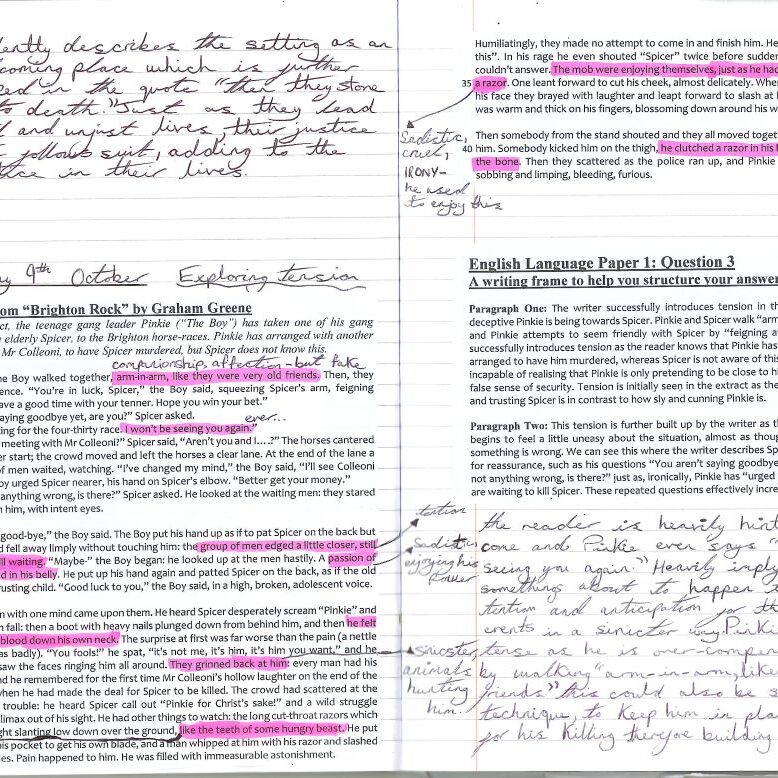 ently describes the setting as an
coming place which is further
ed in the quote "then they stone
to death." Just as they lead
d and unjust lives, their justice
follows suit, adding to the
ce in their lives.
y 9th October Exploring tension
om "Brighton Rock" by Graham Greene
ct, the teenage gang leader Pinkie ("The Boy") has taken one of his gang
e elderly Spicer, to the Brighton horse-races. Pinkie has arranged with another
Mr Colleoni, to have Spicer murdered, but Spicer does not know this.
companionship, affection - but fake
he Boy walked together, arm-in-arm, like they were very old friends. Then, they
ence. "You're in luck, Spicer," the Boy said, squeezing Spicer's arm, feigning
ave a good time with your tenner. Hope you win your bet."
aying goodbye yet, are you?" Spicer asked.
ever...
ing for the four-thirty race. I won't be seeing you again."
meeting with Mr Colleoni?" Spicer said, "Aren't you and I....?" The horses cantered
er start; the crowd moved and left the horses a clear lane. At the end of the lane a
of men waited, watching. "I've changed my mind," the Boy said, "I'll see Colleoni
oy urged Spicer nearer, his hand on Spicer's elbow. "Better get your money."
anything wrong, is there?" Spicer asked. He looked at the waiting men: they stared
him, with intent eyes.
good-bye," the Boy said. The Boy put his hand up as if to pat Spicer on the back but
d fell away limply without touching him: the group of men edged a little closer, still
ll waiting. "Maybe-" the Boy began: he looked up at the men hastily. A passion of
d in his belly. He put up his hand again and patted Spicer on the back, as if the old
rusting child. "Good luck to you," the Boy said, in a high, broken, adolescent voice.
n with one mind came upon them. He heard Spicer desperately scream "Pinkie" and
fall: then a boot with heavy nails plunged down from behind him, and then he felt
blood down his own neck. The surprise at first was far worse than the pain (a nettle
as badly). "You fools!" he spat, "it's not me, it's him, it's him you want," and he
saw the faces ringing him all around. They grinned back at him: every man had his
nd he remembered for the first time Mr Colleoni's hollow laughter on the end of the
hen he had made the deal for Spicer to be killed. The crowd had scattered at the
trouble: he heard Spicer call out "Pinkie for Christ's sake!" and a wild struggle
limax out of his sight. He had other things to watch: the long cut-throat razors which
ght slanting low down over the ground, like the teeth of some hungry beast. He put
his pocket to get his own blade, and a man whipped at him with his razor and slashed
les. Pain happened to him. He was filled with immeasurable astonishment.
Humiliatingly, they made no attempt to come in and finish him. He
this". In his rage he even shouted "Spicer" twice before sudden
couldn't answer. The mob were enjoying themselves, just as he had
35 a razor. One leant forward to cut his cheek, almost delicately. Whe
his face they brayed with laughter and leapt forward to slash at
was warm and thick on his fingers, blossoming down around his w
Then somebody from the stand shouted and they all moved togeth
40 him. Somebody kicked him on the thigh, he clutched a razor in his
the bone. Then they scattered as the police ran up, and Pinkie
sobbing and limping, bleeding, furious.
Sadistic,
cruel,
IRONY-
he used
to enjoy this
English Language Paper 1: Question 3
A writing frame to help you structure your answer
Paragraph One: The writer successfully introduces tension in th
deceptive Pinkie is being towards Spicer. Pinkie and Spicer walk "arm
and Pinkie attempts to seem friendly with Spicer by "feigning a
successfully introduces tension as the reader knows that Pinkie has
arranged to have him murdered, whereas Spicer is not aware of this
incapable of realising that Pinkie is only pretending to be close to hi
false sense of security. Tension is initially seen in the extract as the
and trusting Spicer is in contrast to how sly and cunning Pinkie is.
Paragraph Two: This tension is further built up by the writer as th
begins to feel a little uneasy about the situation, almost as thoug
something is wrong. We can see this where the writer describes Sp
for reassurance, such as his questions "You aren't saying goodbye
not anything wrong, is there?" just as, ironically, Pinkie has "urged
are waiting to kill Spicer. These repeated questions effectively incre
tention
Sadistic,
enjoying his
power
sinister,
animals
hunting
him.
the reader is heavily hint
come and Pinkie even says "
seeing you again." Heavily imply
something about to happen t
tention and anticipation for th
events in a sinicter way. Pinki
tense as he is over-compen
by walking "arm-in-arm, like
friends" this could also be s
technique, to keep him in pla
for his killing therefore building